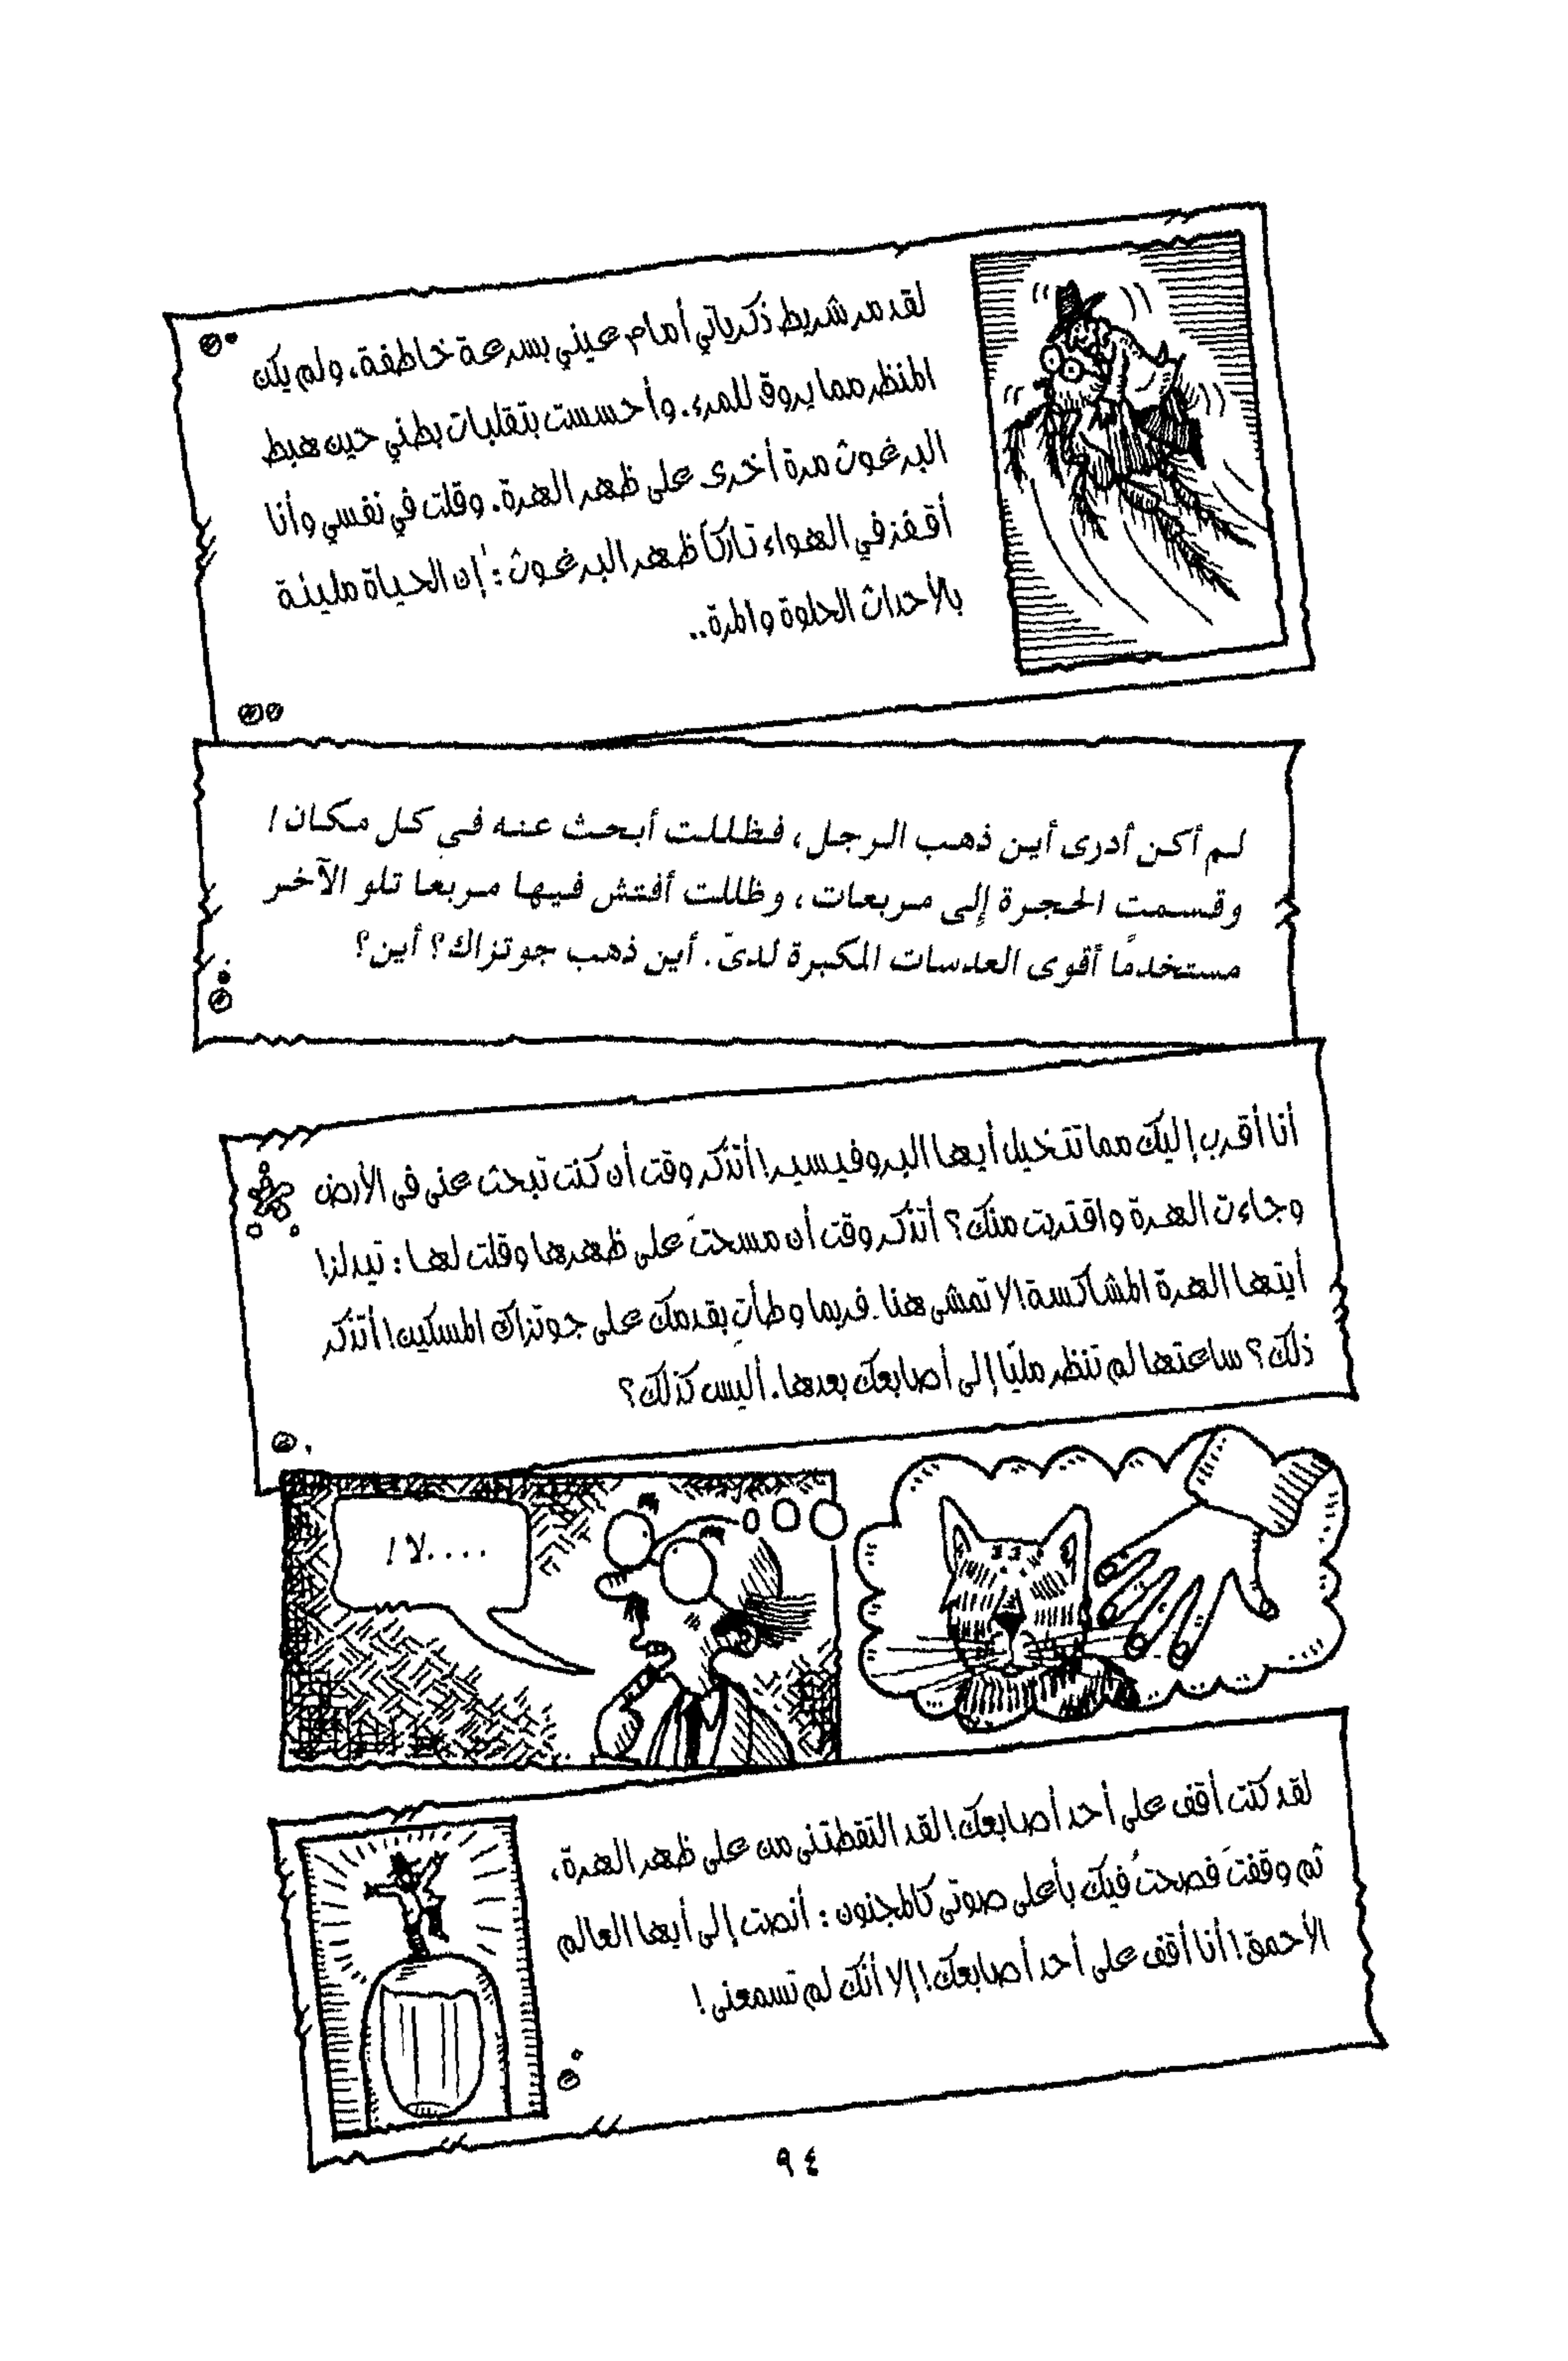 لقد مر شريط ذكرياتي أمام عيني بسرعة خاطفة، ولم يكن
المنظر مما يروق للمرء. وأحسست بتقلبات بطني حين هبط
البرغوث مرة أخرى على ظهر الهرة. وقلت في نفسي وأنا
أقفز في الهواء تاركاً ظهر البرغوث: إن الحياة مليئة
بالأحداث الحلوة والمرة..
لم أكن أدرى أين ذهب الرجل، فظللت أبحث عنه في كل مكان!
وقسمت الحجرة إلى مربعات، وظللت أفتش فيها مربعا تلو الآخر
مستخدمًا أقوى العدسات المكبرة لدىّ. أين ذهب جوتزاك؟ أين؟
أنا أقرب إليك مما تتخيل أيها البروفيسير! أتذكر وقت أن كنت تبحث عنى فى الأرض
وجاءت الهرة واقتربت منك؟ أتذكر وقت أن مسحتَ على ظهرها وقلت لها: تيدلز!
أيتها الهرة المشاكسة! لا تمشى هنا. فربما وطأتِ بقدمك على جوتزاك المسكين! أتذكر
ذلك؟ ساعتها لم تنظر مليًا إلى أصابعك بعدها. أليس كذلك؟
....لا!
لقد كنت أقف على أحد أصابعك! لقد التقطتنى من على ظهر الهرة،
ثم وقفتَ فصحتُ فيك بأعلى صوتى كالمجنون: أنصت إلى أيها العالم
الأحمق! أنا أقف على أحد أصابعك! إلا أنك لم تسمعنى!
٩٤